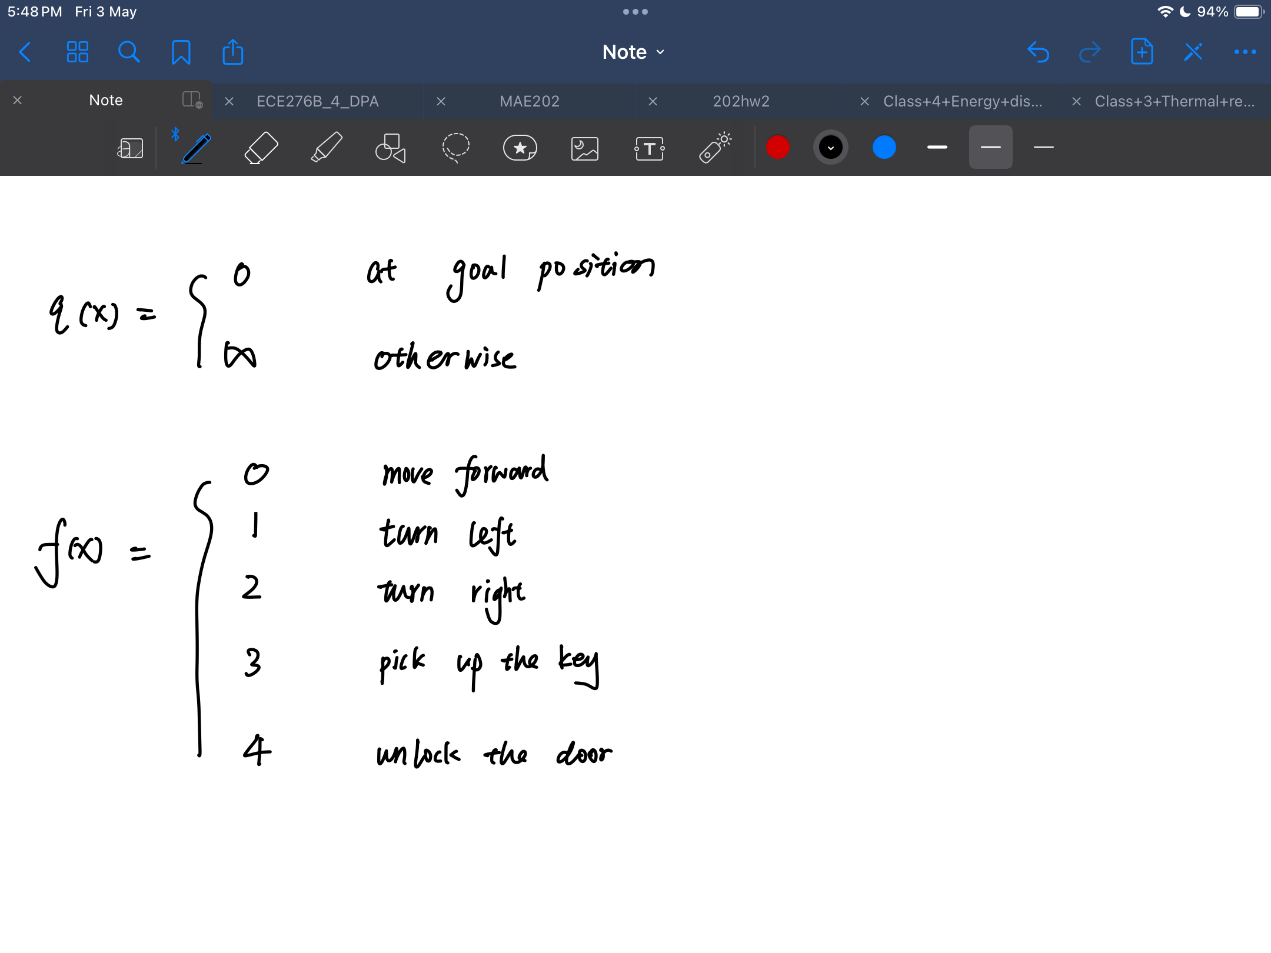 5:48 PM Fri 3 May 94%
Note
Note ECE276B_4_DPA MAE202 202hw2 Class+4+Energy+dis... Class+3+Thermal+re...
T
q(x) = { 0 at goal position
∞ otherwise
f(x) = { 0 move forward
1 turn left
2 turn right
3 pick up the key
4 unlock the door